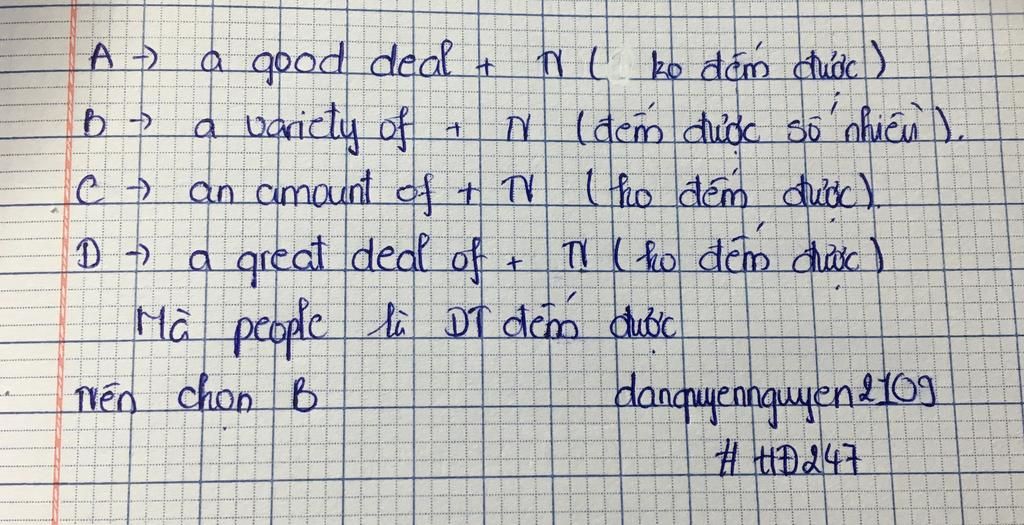 A → a good deal + N ( ko đếm được )
B → a variety of + N (đếm được số nhiều ).
C → an amount of + N ( ko đếm được).
D → a great deal of + N ( ko đếm được )
Mà people là DT đếm được
Nên chọn B danquyennguyen2109
# HĐ247